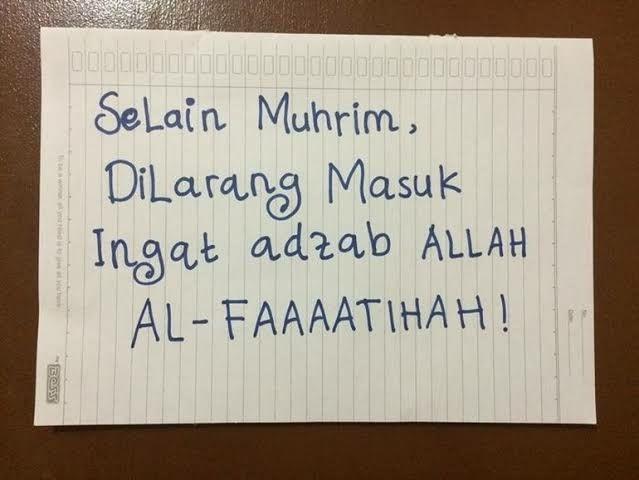 Selain Muhrim,
Dilarang Masuk
Ingat adzab ALLAH
AL-FAAAATIHAH!
No.
Date.